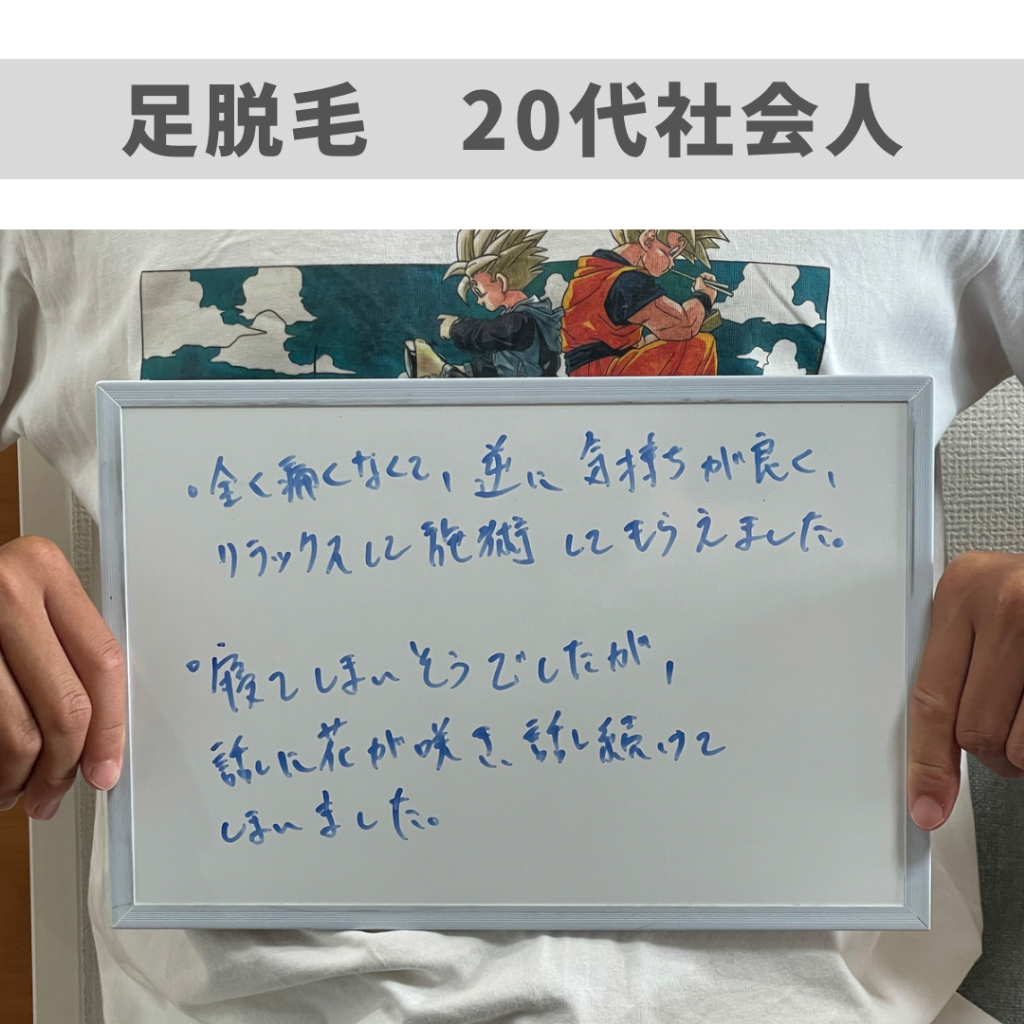 足脱毛　20代社会人
・全く痛くなくて、逆に気持ちが良く、
リラックスして施術してもらえました。
・寝てしまいそうでしたが、
話しに花が咲き、話し続けて
しまいました。